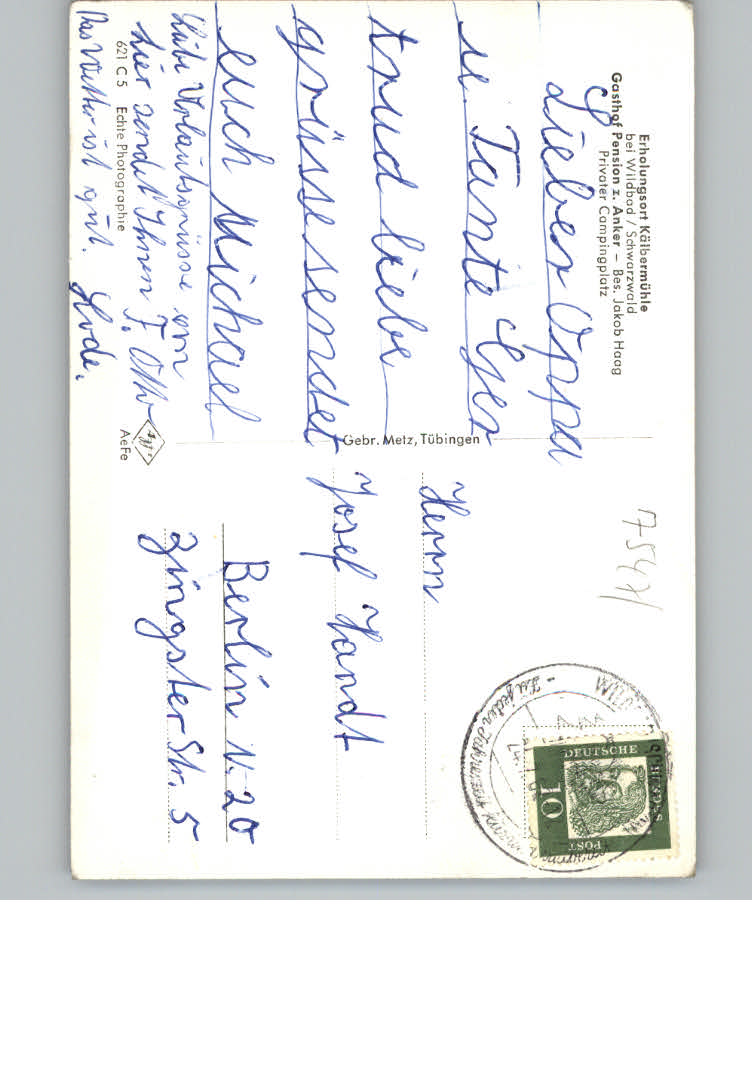 Erholungsort Kälbermühle
bei Wildbad / Schwarzwald
Gasthof Pension z. Anker – Bes. Jakob Haag
Privater Campingplatz
Lieber Oppa
u. Tante
trud liebe
grüsse sendet
euch Michael
Liebe Urlaubsgrüsse von
hier sendet Ihnen F. Otto
621 C 5 Echte Photographie
Das Wetter ist gut.
Gebr. Metz, Tübingen
AeFe
7547/
Herrn
Josef Handt
Berlin N. 20
Zingster Str. 5
DEUTSCHE
BUNDESPOST
10